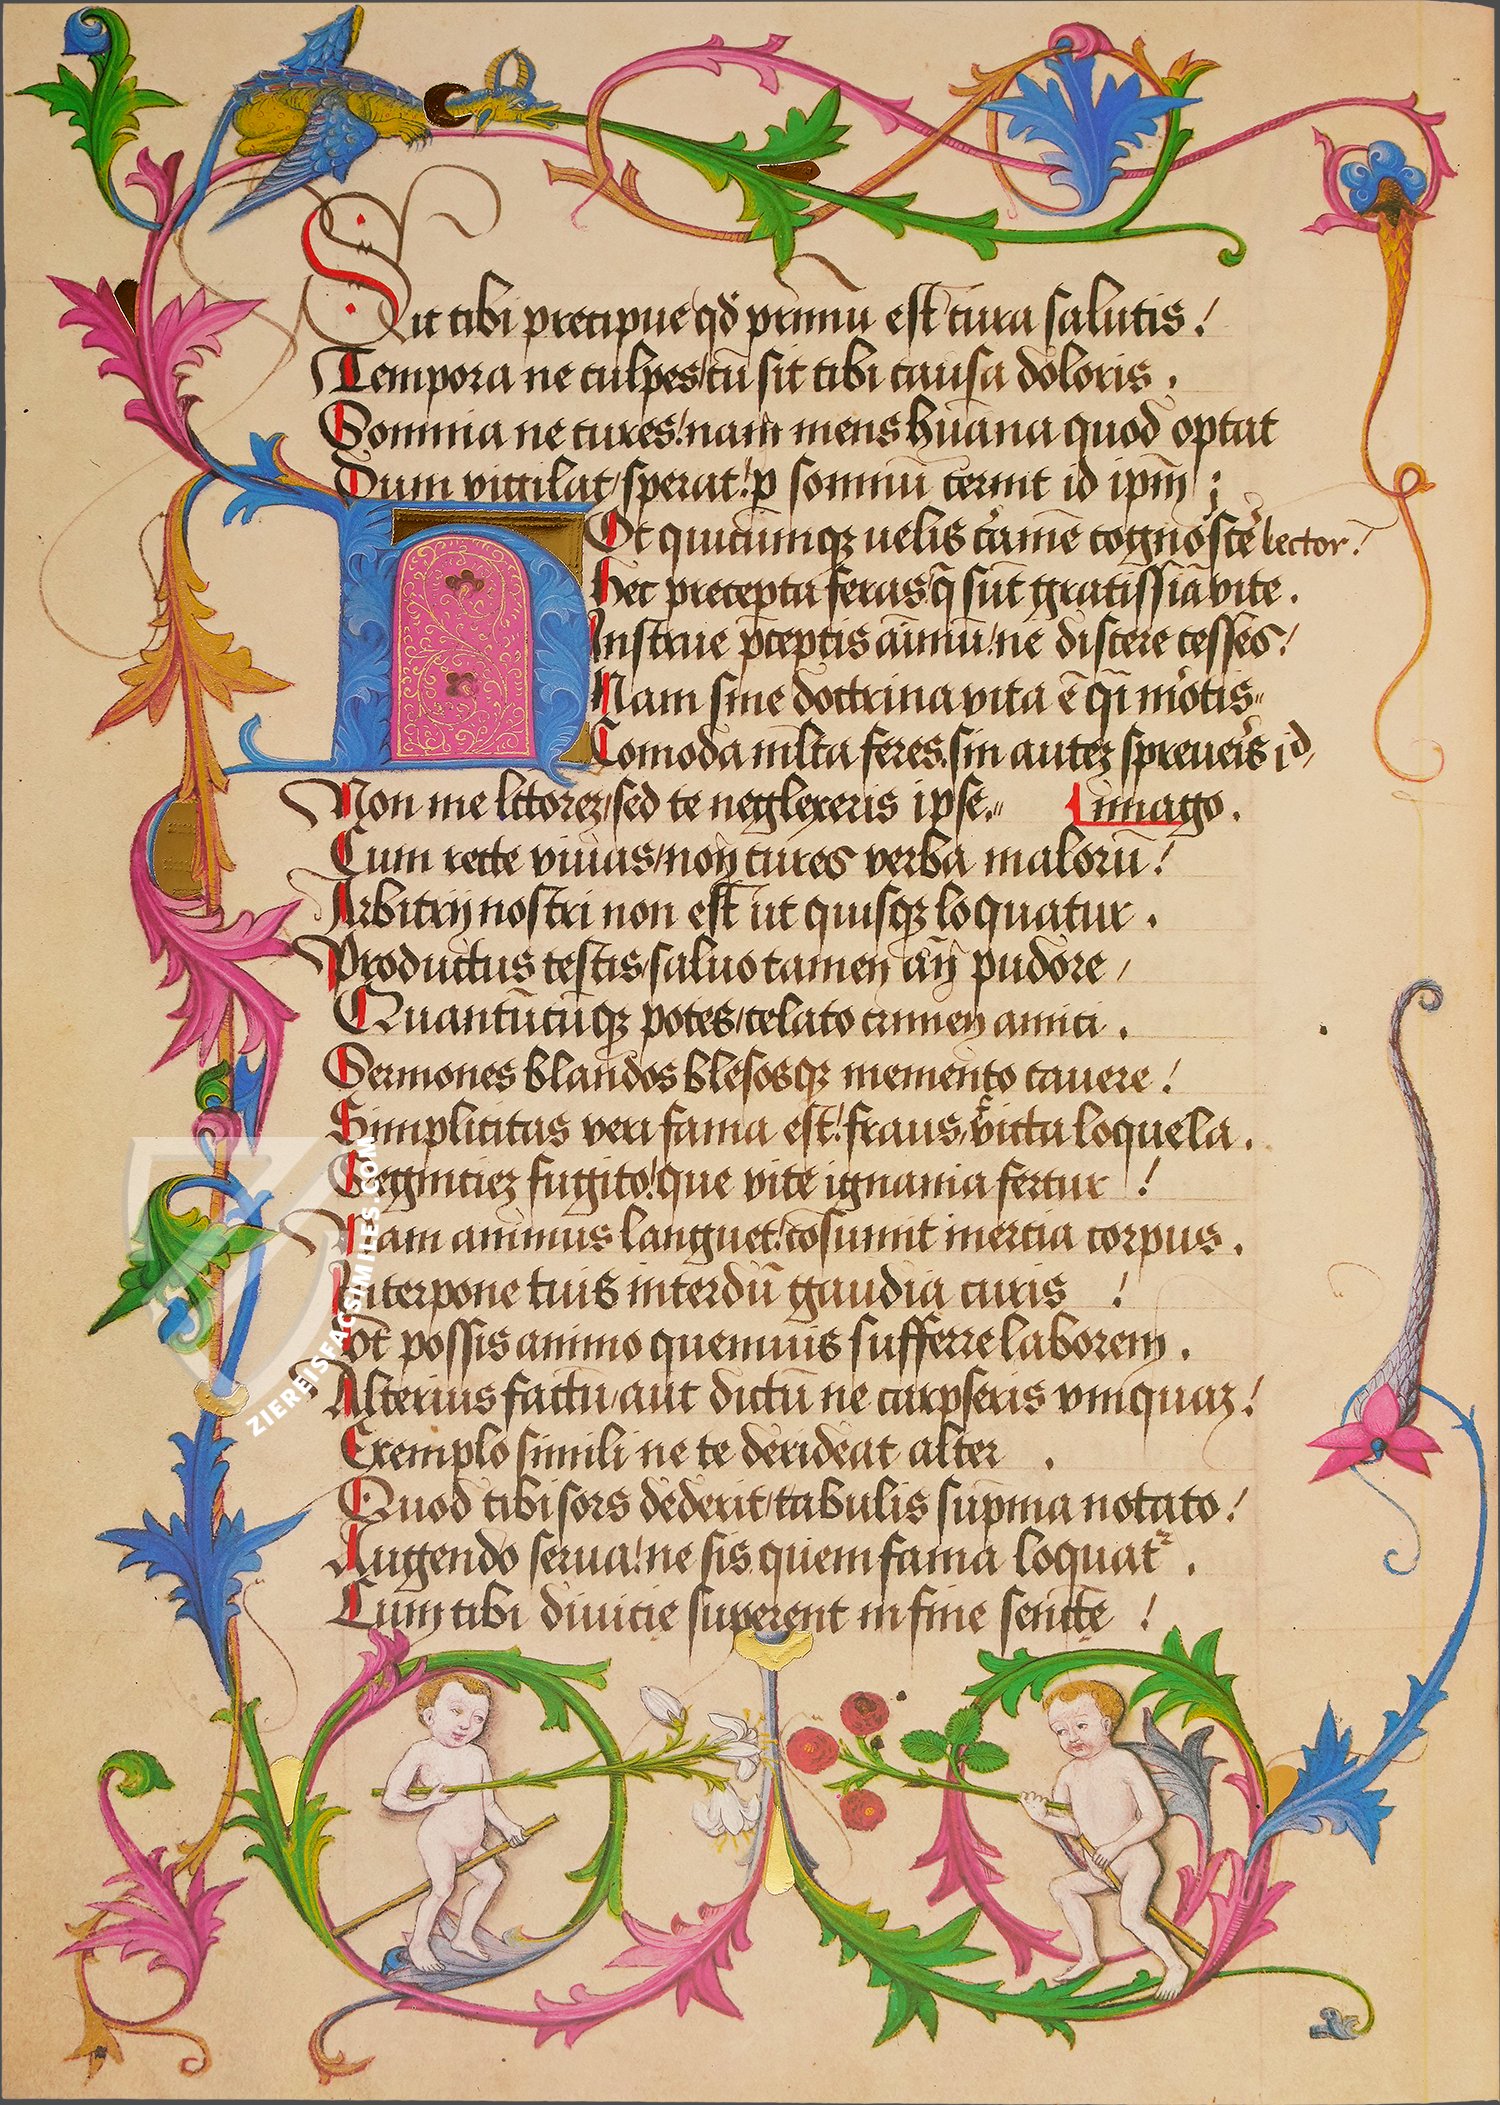 Sit tibi precipue qd̄ primū est cura salutis!
Tempora ne culpes / cū sit tibi causa doloris.
Somnia ne cures! nam mens hūana quod optat
Dum vigilat / sperat! p somnū cernit id ipm̄;
Hoc quicūmqꝫ uelis carmē cognoscē lector!
Hec precepta feras! q̄ sūt gratissīa vite.
Instrue p̄ceptis aīmū! ne discere cesses!
Nam sine doctrina vita ē qī mortis
Comoda mlta feres. sin autez spreueris id,
Non me scitorez / sed te neglexeris ipse. Imago.
Cum recte viuas / non cures verba malorū!
Arbitrij nostri non est ut quisqꝫ loquatur.
Productus testis / saluo tamen añ pudore /
Quantūcūqꝫ potes / celato crimen amici.
Sermones blandos blesosqꝫ memento cauere!
Simplicitas veri fama est! fraus, ficta loquela.
Segniciez fugito! que vite ignauia fertur!
Nam animus languet! cōsumit inercia corpus.
Interpone tuis interdū gaudia curis!
Vt possis animo quemuis sufferre laborem.
Alterius factū / aut dictū ne carpseris vmquaz!
Exemplo simili ne te derideat alter.
Quod tibi sors dederit / tabulis supma notato!
Augendo serua! ne sis quem fama loquat.
Cum tibi diuicie superent in fine senecte!
ZIEREISFACSIMILES.COM